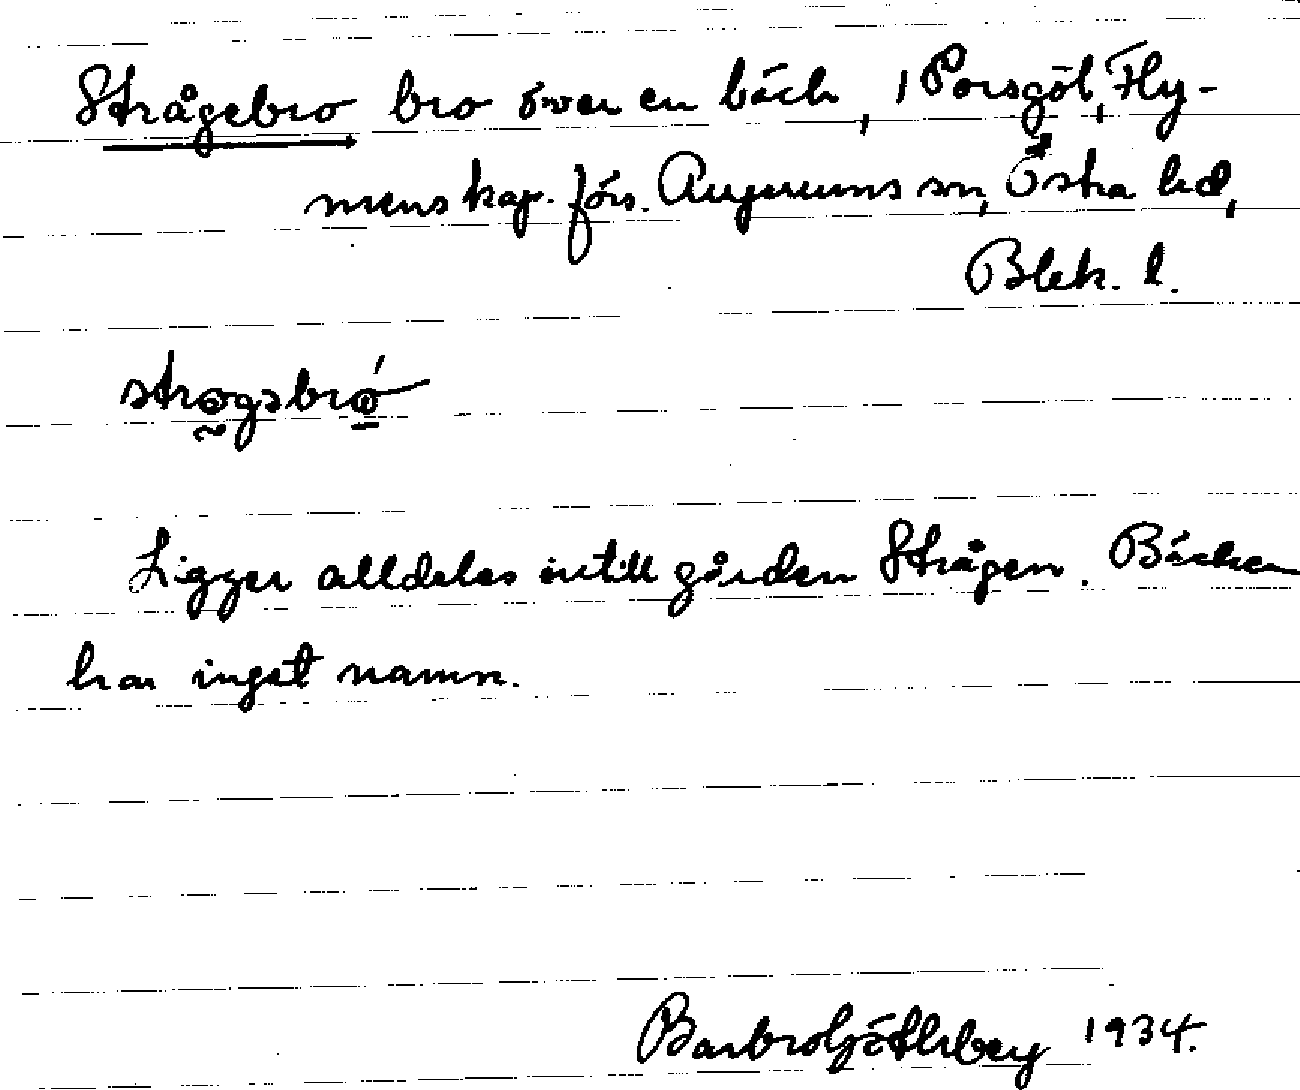 Strågebro bro över en bäck, 1 Porsgöl, Fly-
mens kap. förs. Augerums sn, Östra hd,
Blek. l.
strøgəbrǿ
Ligger alldeles intill gården Strågen. Bäcken
har inget namn.
Barbro Götherberg 1934.